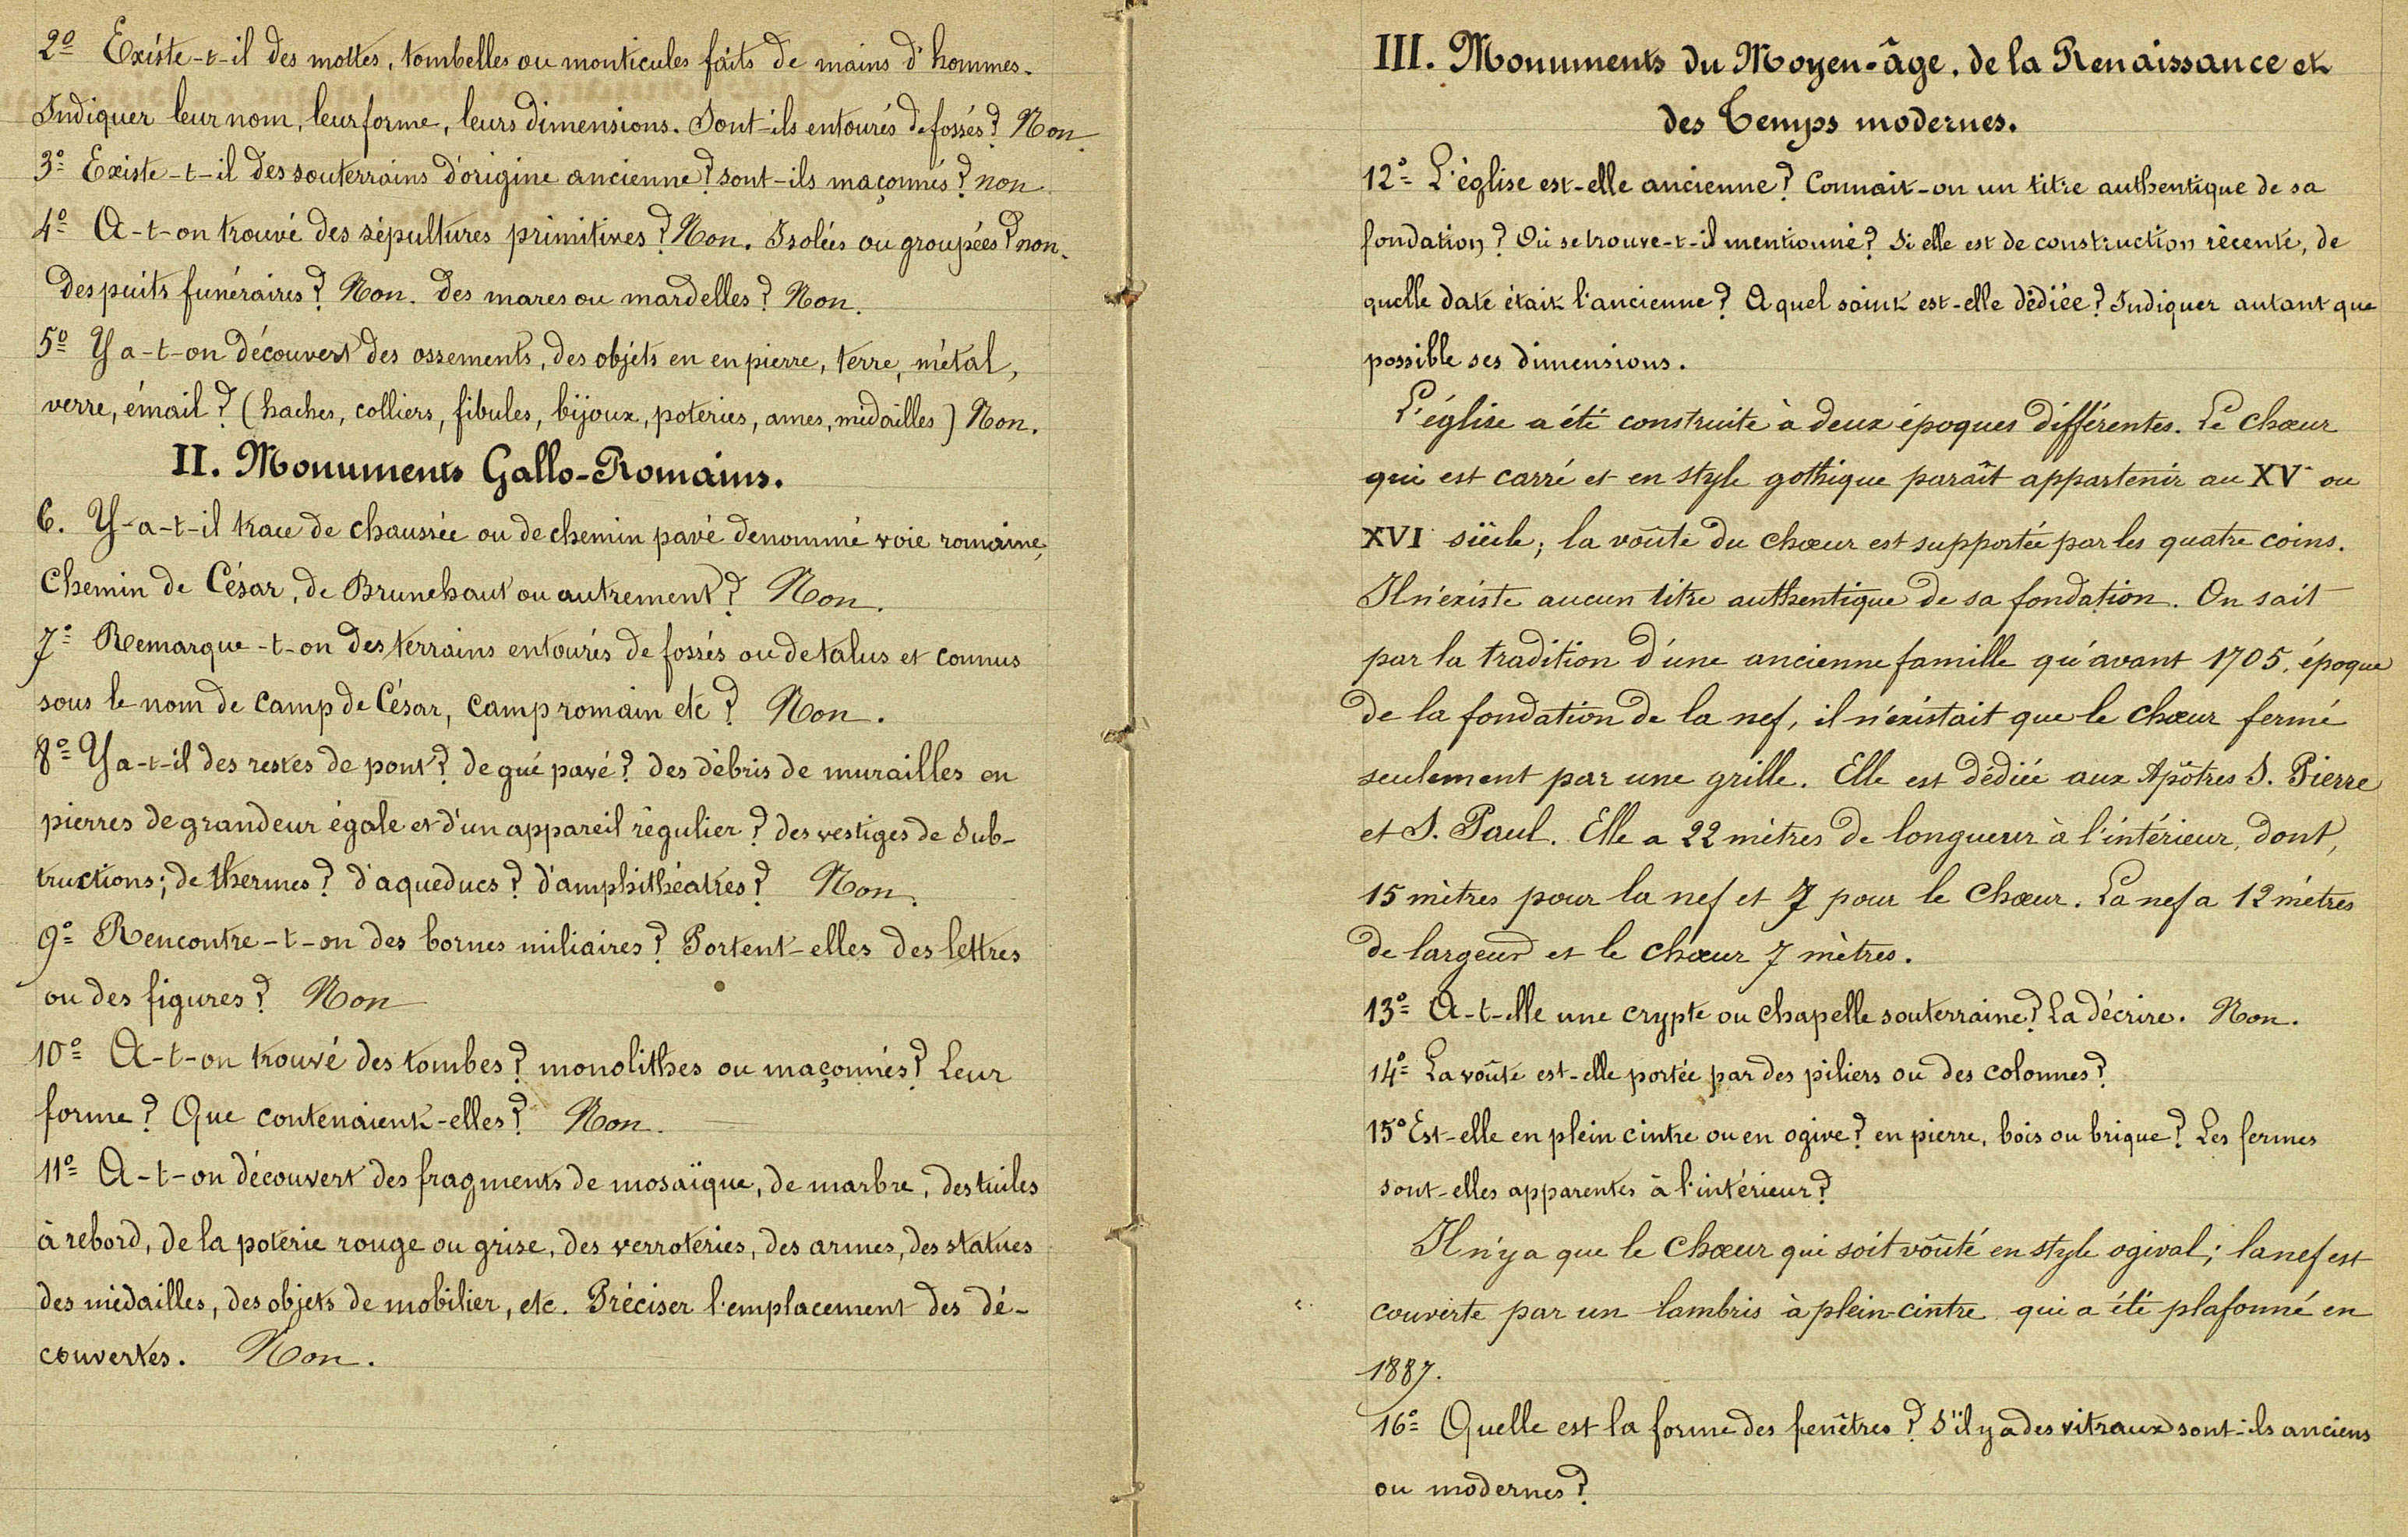 2º Existe-t-il des mottes, tombelles ou monticules faits de mains d'hommes.
Indiquer leur nom, leur forme, leurs dimensions. Sont-ils entourés de fossés? Non.
3º Existe-t-il des souterrains d'origine ancienne? sont-ils maçonnés? non
4º A-t-on trouvé des sépultures primitives? Non. Isolées ou groupées? non.
des puits funéraires? Non. Des mares ou mardelles? Non.
5º Y a-t-on découvert des ossements, des objets en en pierre, terre, métal,
verre, émail? (haches, colliers, fibules, bijoux, poteries, ames, médailles) Non.
II. Monuments Gallo-Romains.
6. Y-a-t-il trace de chaussée ou de chemin pavé dénommé voie romaine,
chemin de César, de Brunehaut ou autrement? Non.
7º Remarque-t-on des terrains entourés de fossés ou de talus et connus
sous le nom de camp de César, camp romain etc? Non.
8º Y a-t-il des restes de pont? de gué pavé? des débris de murailles en
pierres de grandeur égale et d'un appareil régulier? des vestiges de Sub-
tructions; de thermes? d'aqueducs? d'amphithéatres? Non.
9º Rencontre-t-on des bornes miliaires? Portent-elles des lettres
ou des figures? Non
10º A-t-on trouvé des tombes? monolithes ou maçonnés? Leur
forme? Que contenaient-elles? Non.
11º A-t-on découvert des fragments de mosaïque, de marbre, des tuiles
à rebord, de la poterie rouge ou grise, des verroteries, des armes, des statues
des médailles, des objets de mobilier, etc. Préciser l'emplacement des dé-
couvertes. Non.
III. Monuments du Moyen-âge, de la Renaissance et
des Temps modernes.
12º L'église est-elle ancienne? Connait-on un titre authentique de sa
fondation? Où se trouve-t-il mentionné? Si elle est de construction récente, de
quelle date était l'ancienne? A quel saint est-elle dédiée? Indiquer autant que
possible ses dimensions.
L'église a été construite à deux époques différentes. Le chœur
qui est carré et en style gothique paraît appartenir au XV ou
XVI siècle; la voûte du chœur est supportée par les quatre coins.
Il n'existe aucun titre authentique de sa fondation. On sait
par la tradition d'une ancienne famille qu'avant 1705, époque
de la fondation de la nef, il n'existait que le chœur fermé
seulement par une grille. Elle est dédiée aux Apôtres S. Pierre
et S. Paul. Elle a 22 mètres de longueur à l'intérieur, dont,
15 mètres pour la nef et 7 pour le Chœur. La nef a 12 mètres
de largeur et le chœur 7 mètres.
13º A-t-elle une crypte ou chapelle souterraine? La décrire. Non.
14º La voûte est-elle portée par des piliers ou des colonnes?
15º Est-elle en plein cintre ou en ogive? en pierre, bois ou brique? Les fermes
sont-elles apparentes à l'intérieur?
Il n'y a que le Chœur qui soit voûté en style ogival; la nef est
couverte par un lambris à plein-cintre qui a été plafonné en
1887.
16º Quelle est la forme des fenêtres? S'il y a des vitraux sont-ils anciens
ou modernes?